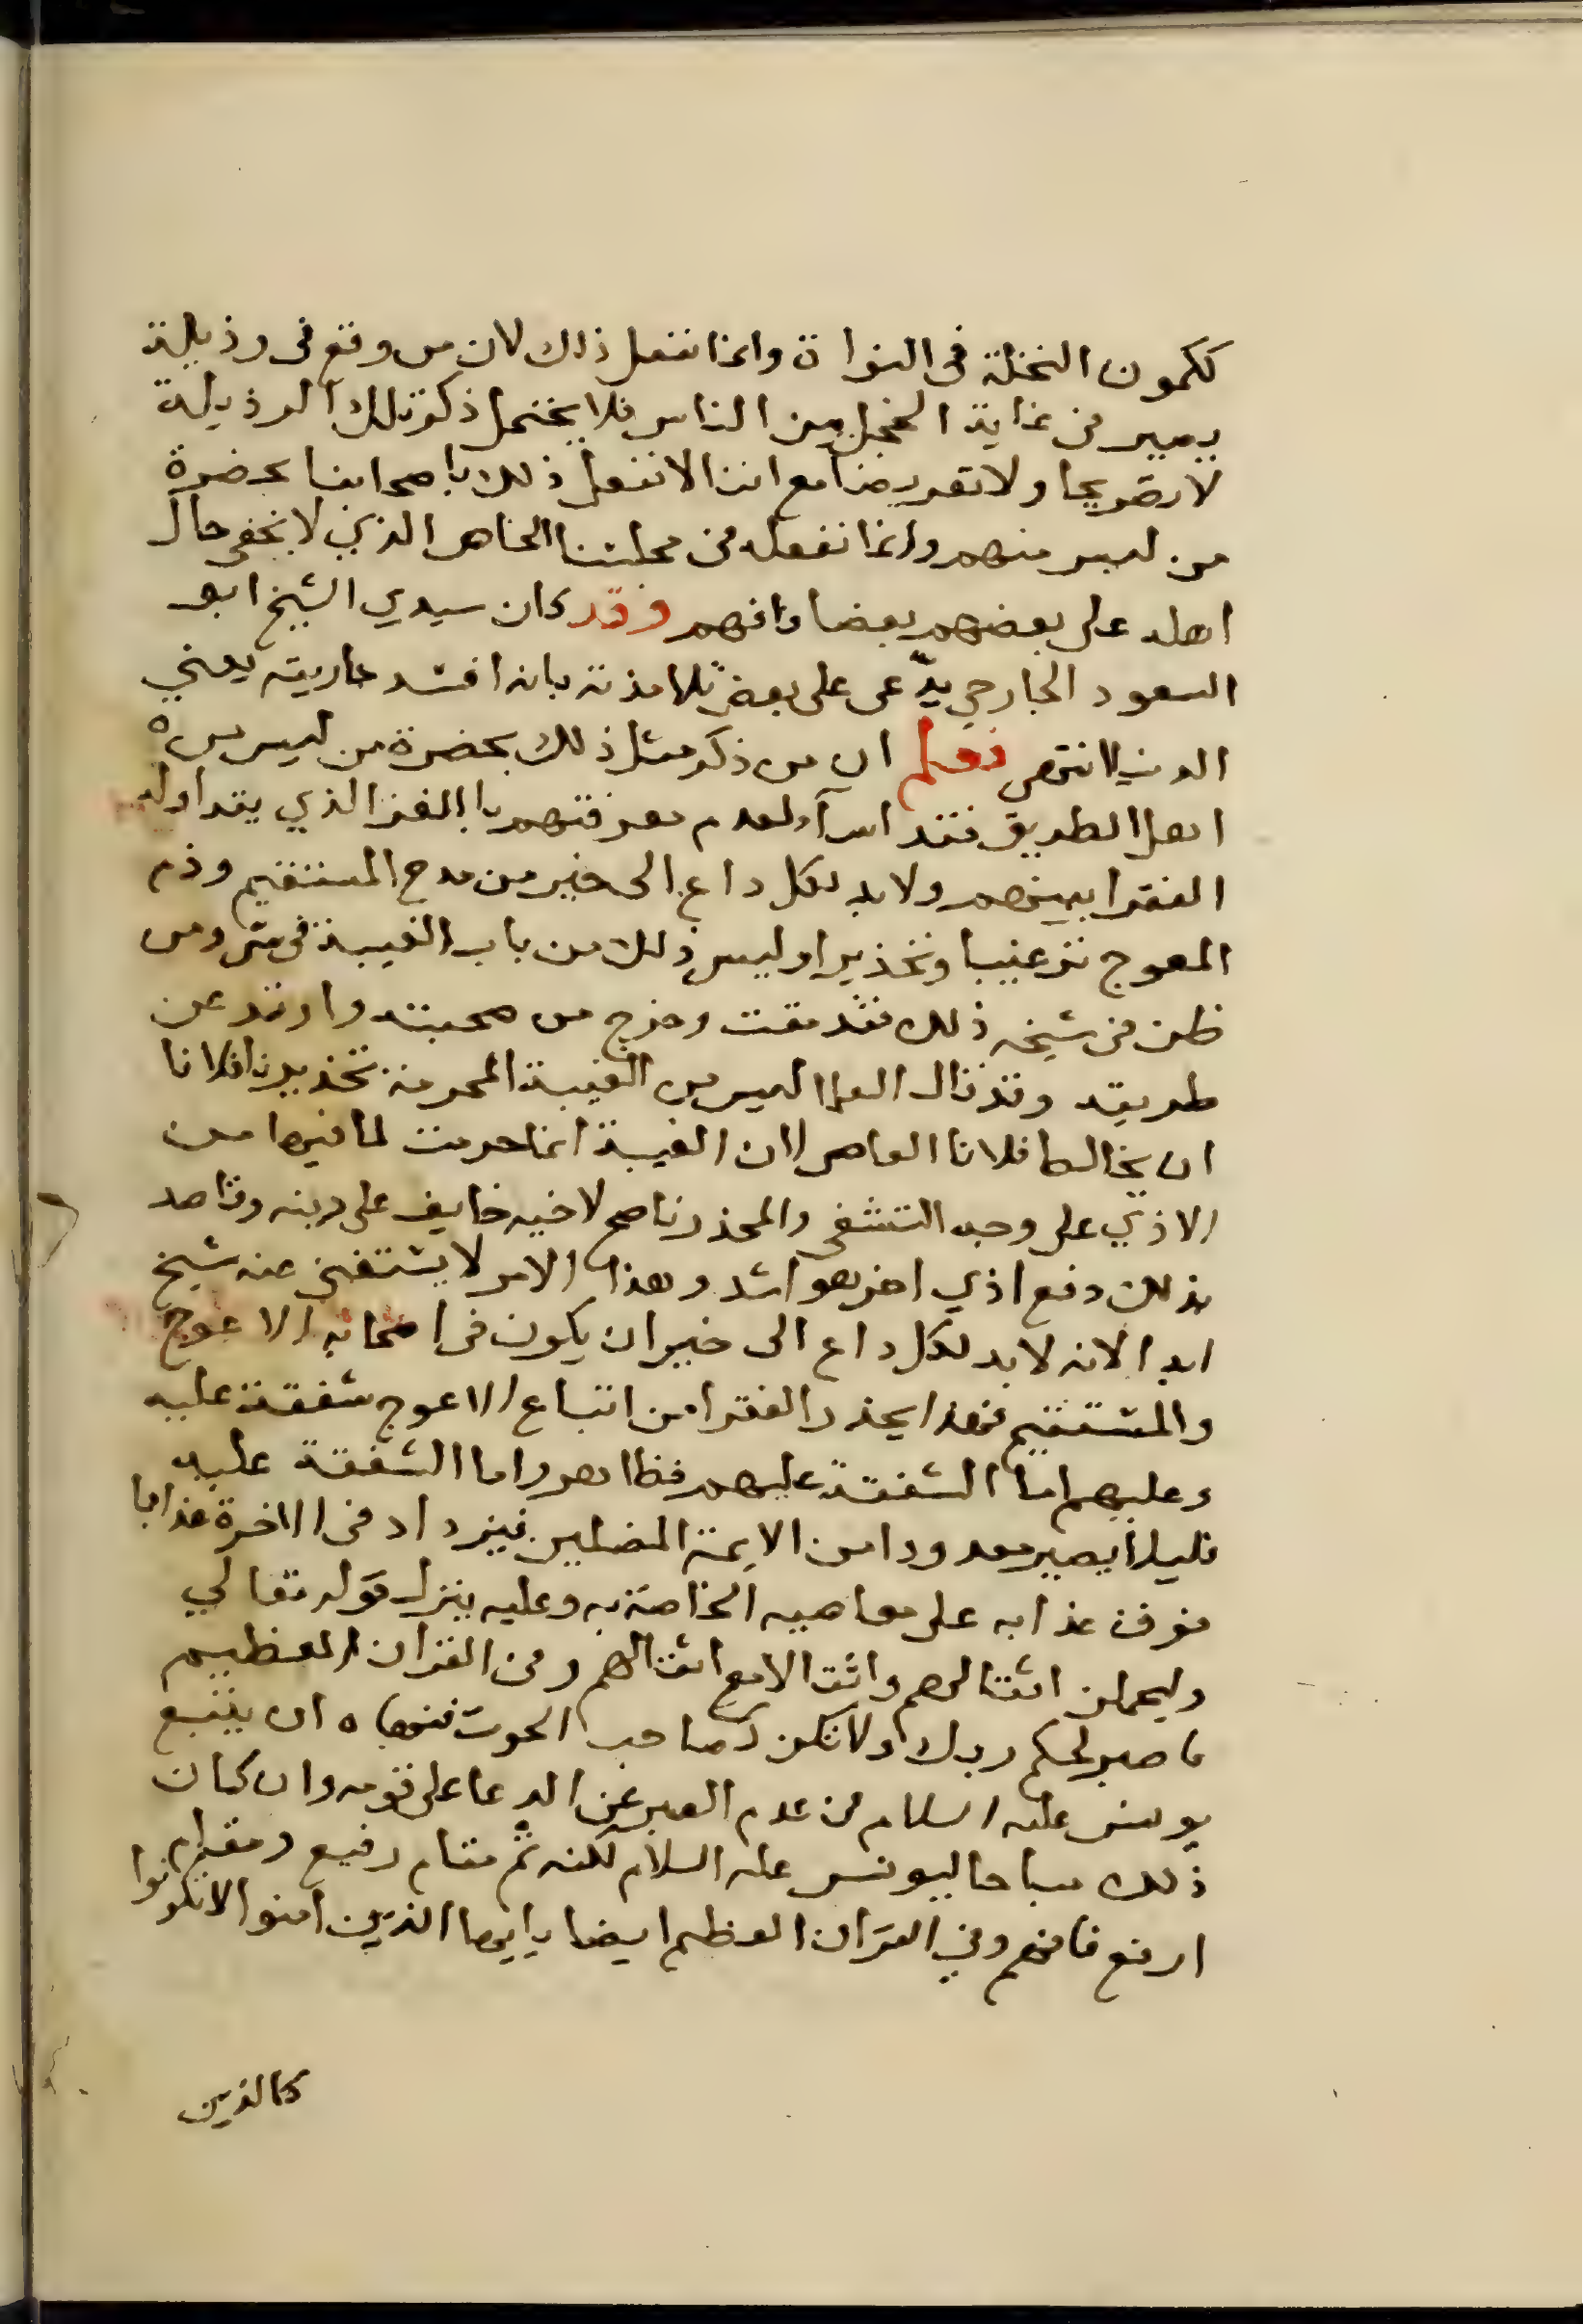 ككمون النخلة فى النواة وانما نفعل ذلك لان من وقع فى رذيلة
يصير فى غاية الخجل بين الناس فلا يحتمل ذكر تلك الرذيلة
لا تصريحا ولا تعريضا مع اننا لا نفعل ذلك باصحابنا بحضرة
من ليس منهم وانما نفعله فى مجلسنا الخاص الذي لا يخفى حال
اهله على بعضهم بعضا فافهم وقد كان سيدي الشيخ ابو
السعود الجارحي يدّعى على بعض تلامذته بانه افسد جاريته يعني
الدنيا انتهى فعلم ان من ذكر مثل ذلك بحضرة من ليس من
اهل الطريق فقد اسآء لعدم معرفتهم باللغز الذي يتداوله
الفقرا بينهم ولا بد لكل داع الى خير من مدح المستقيم وذم
المعوج ترغيبا وتحذيرا وليس ذلك من باب الغيبة فى شى ومن
ظن فى شيخه ذلك فقد مقت وخرج من صحبته وارتد عن
طريقه وقد قال العلما ليس من الغيبة المحرمة تحذيرنا فلانا
ان يخالط فلانا العاصى لان الغيبة انما حرمت لما فيها من
الاذي على وجه التشفى والمحذر ناصح لاخيه خايف على دينه وقاصد
بذلك دفع اذي اخر هو اشد وهذا الامر لا يستغنى عنه شيخ
ابدا لانه لا بد لكل داع الى خير ان يكون فى اصحابه الاعوج
والمستقيم فهذا يحذر الفقرا من اتباع الاعوج شفقة عليه
وعليهم اما الشفقة عليهم فظاهر واما الشفقة عليه
فليلا يصير معدودا من الايمة المضلين فيزداد فى الاخرة عذابا
فوق عذابه على معاصيه الخاصة به وعليه ينزل قوله تعالي
وليحملن اثقالهم واثقالا مع اثقالهم وفى القران العظيم
فاصبر لحكم ربك ولا تكن كصاحب الحوت فنهاه ان يتبع
يونس عليه السلام فى عدم الصبر عن الدعا على قومه وان كان
ذلك مباحا ليونس عليه السلام لكنه ثم مقام رفيع ومقام
ارفع فافهم وفي القران العظيم ايضا يايها الذين امنوا لا تكونوا
كالذين